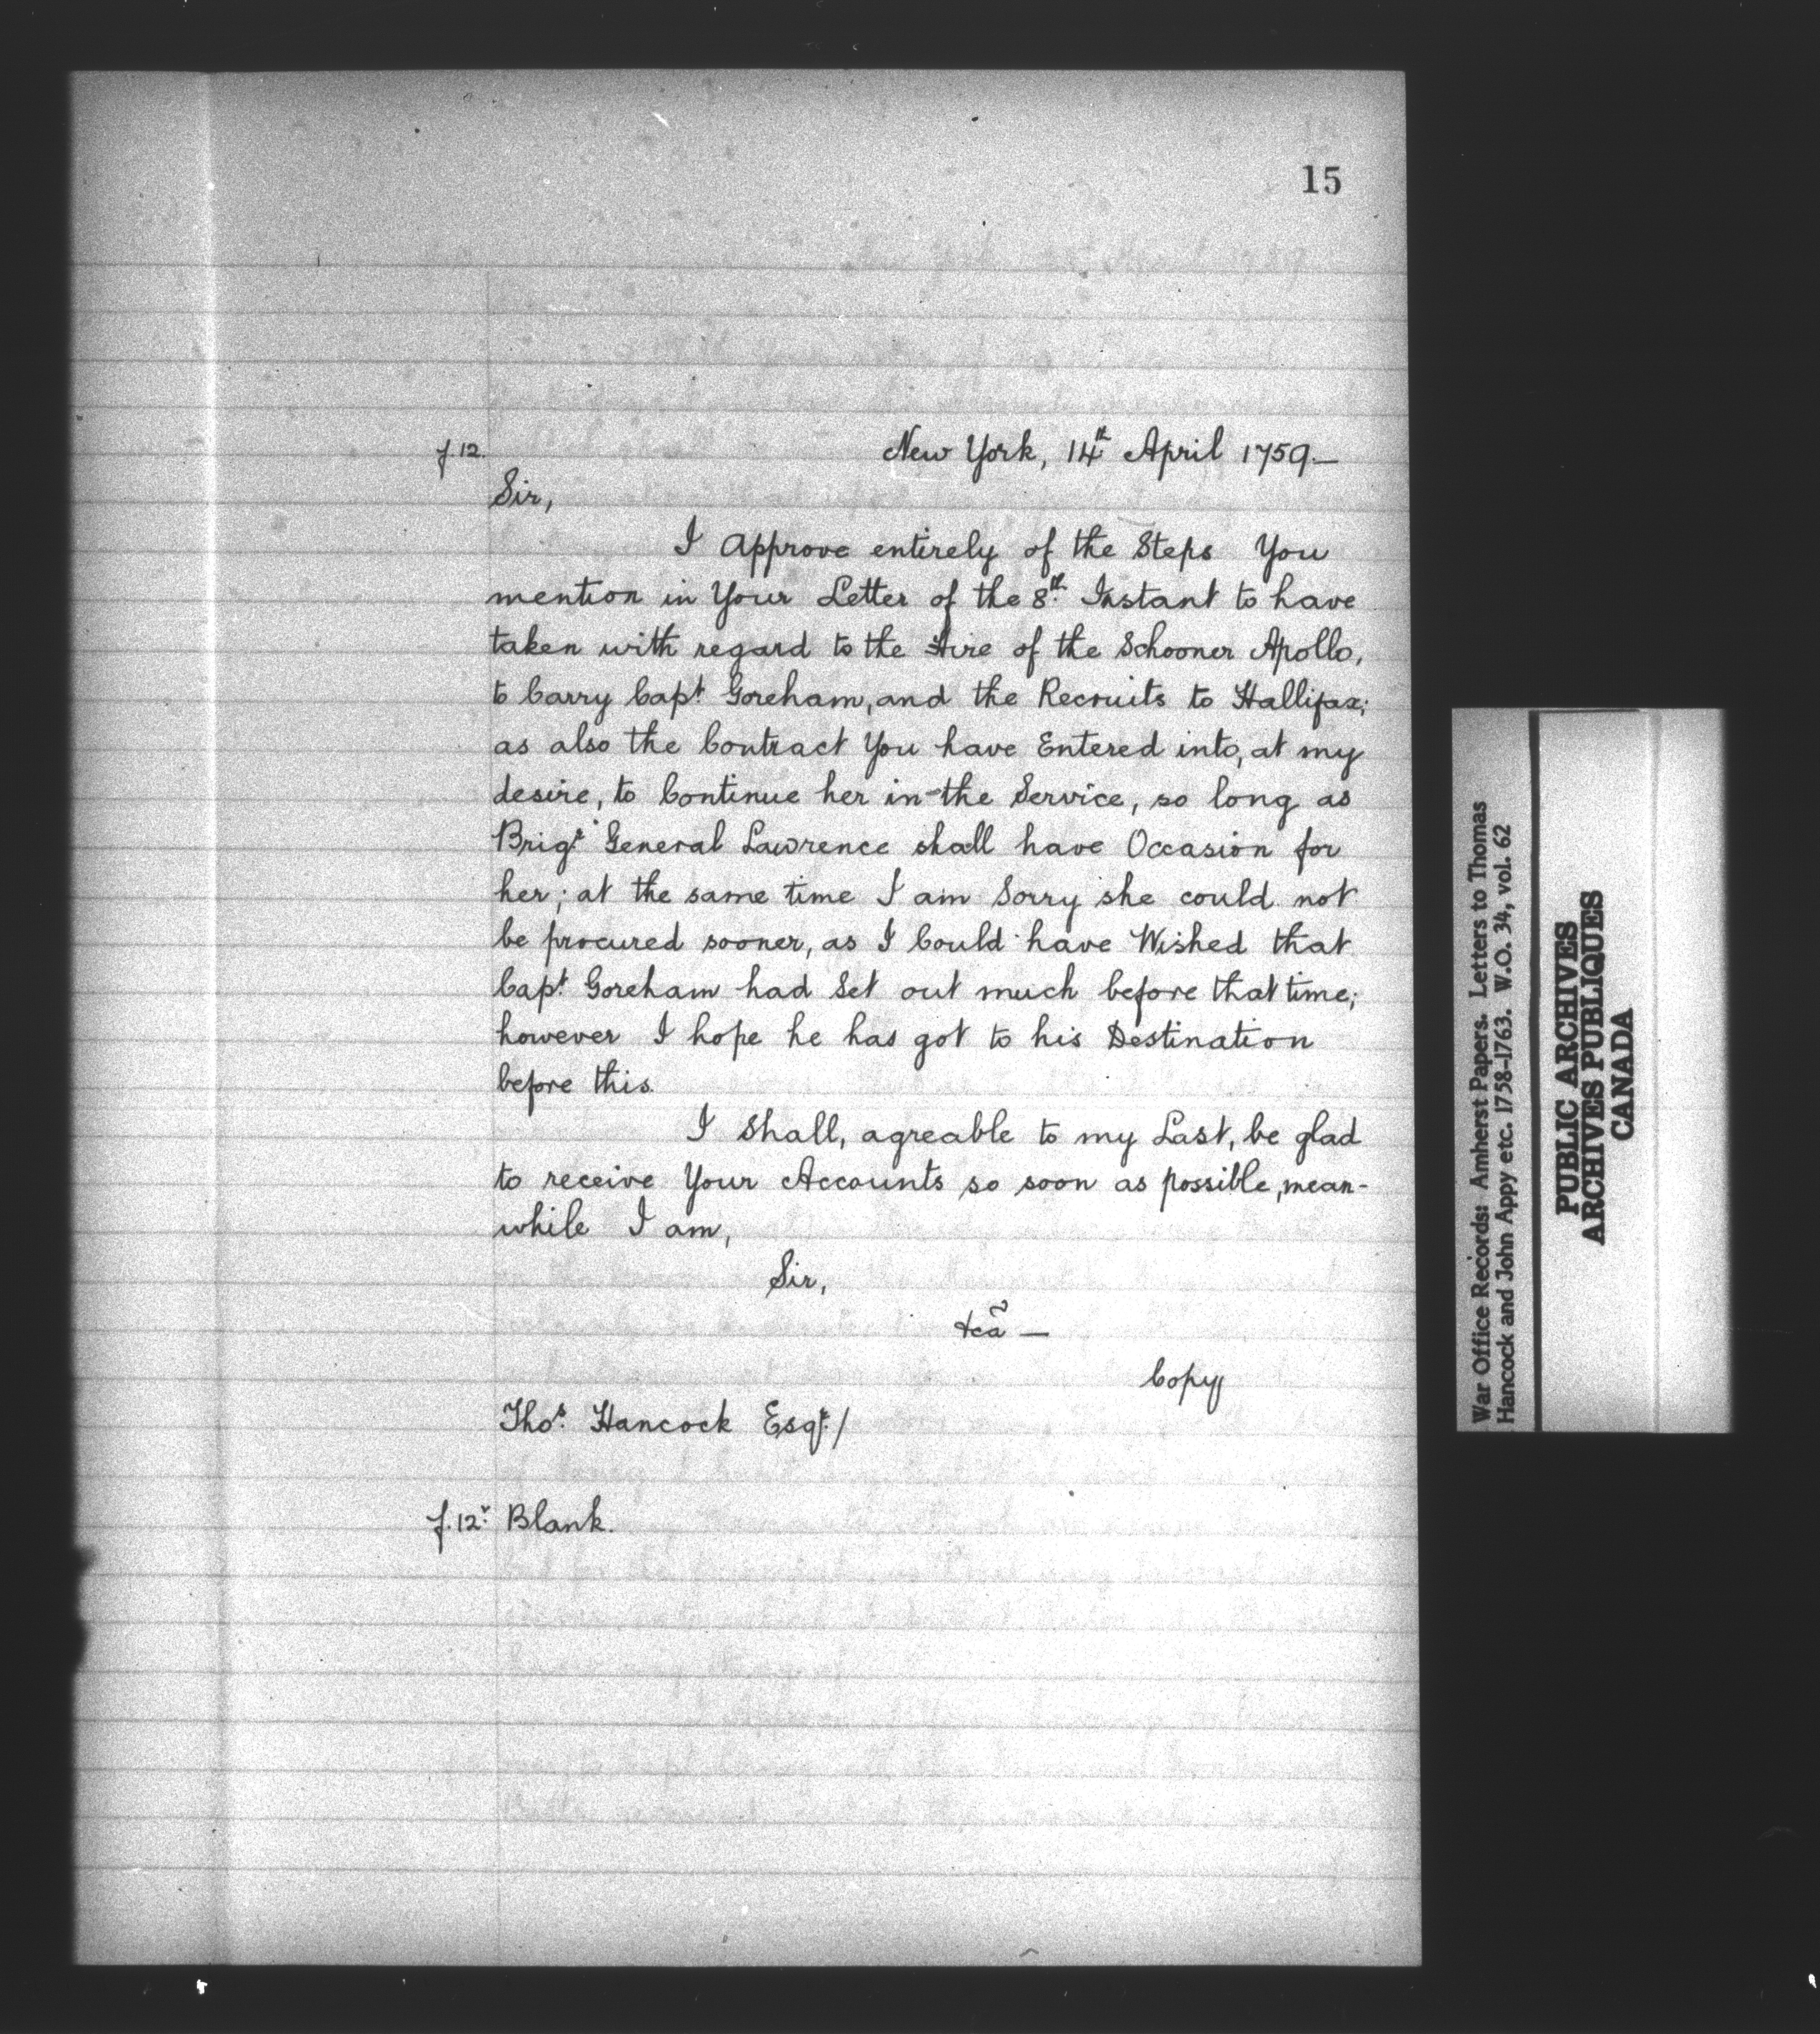 15
f.12. New York, 14th April 1759.—
Sir,
I Approve entirely of the Steps You
mention in Your Letter of the 8th Instant to have
taken with regard to the Hire of the Schooner Apollo,
to Carry Capt. Goreham, and the Recruits to Hallifax;
as also the Contract You have Entered into, at my
desire, to Continue her in the Service, so long as
Brigr. General Lawrence shall have Occasion for
her; at the same time I am Sorry she could not
be procured sooner, as I Could have Wished that
Capt. Goreham had Set out much before that time;
however I hope he has got to his Destination
before this.
I Shall, agreable to my Last, be glad
to receive Your Accounts so soon as possible, mean-
while I am,
Sir,
&ca —
Copy
Thos. Hancock Esqr./
f.12v. Blank.
War Office Records: Amherst Papers. Letters to Thomas
Hancock and John Appy etc. 1758-1763. W.O. 34, vol. 62
PUBLIC ARCHIVES
ARCHIVES PUBLIQUES
CANADA